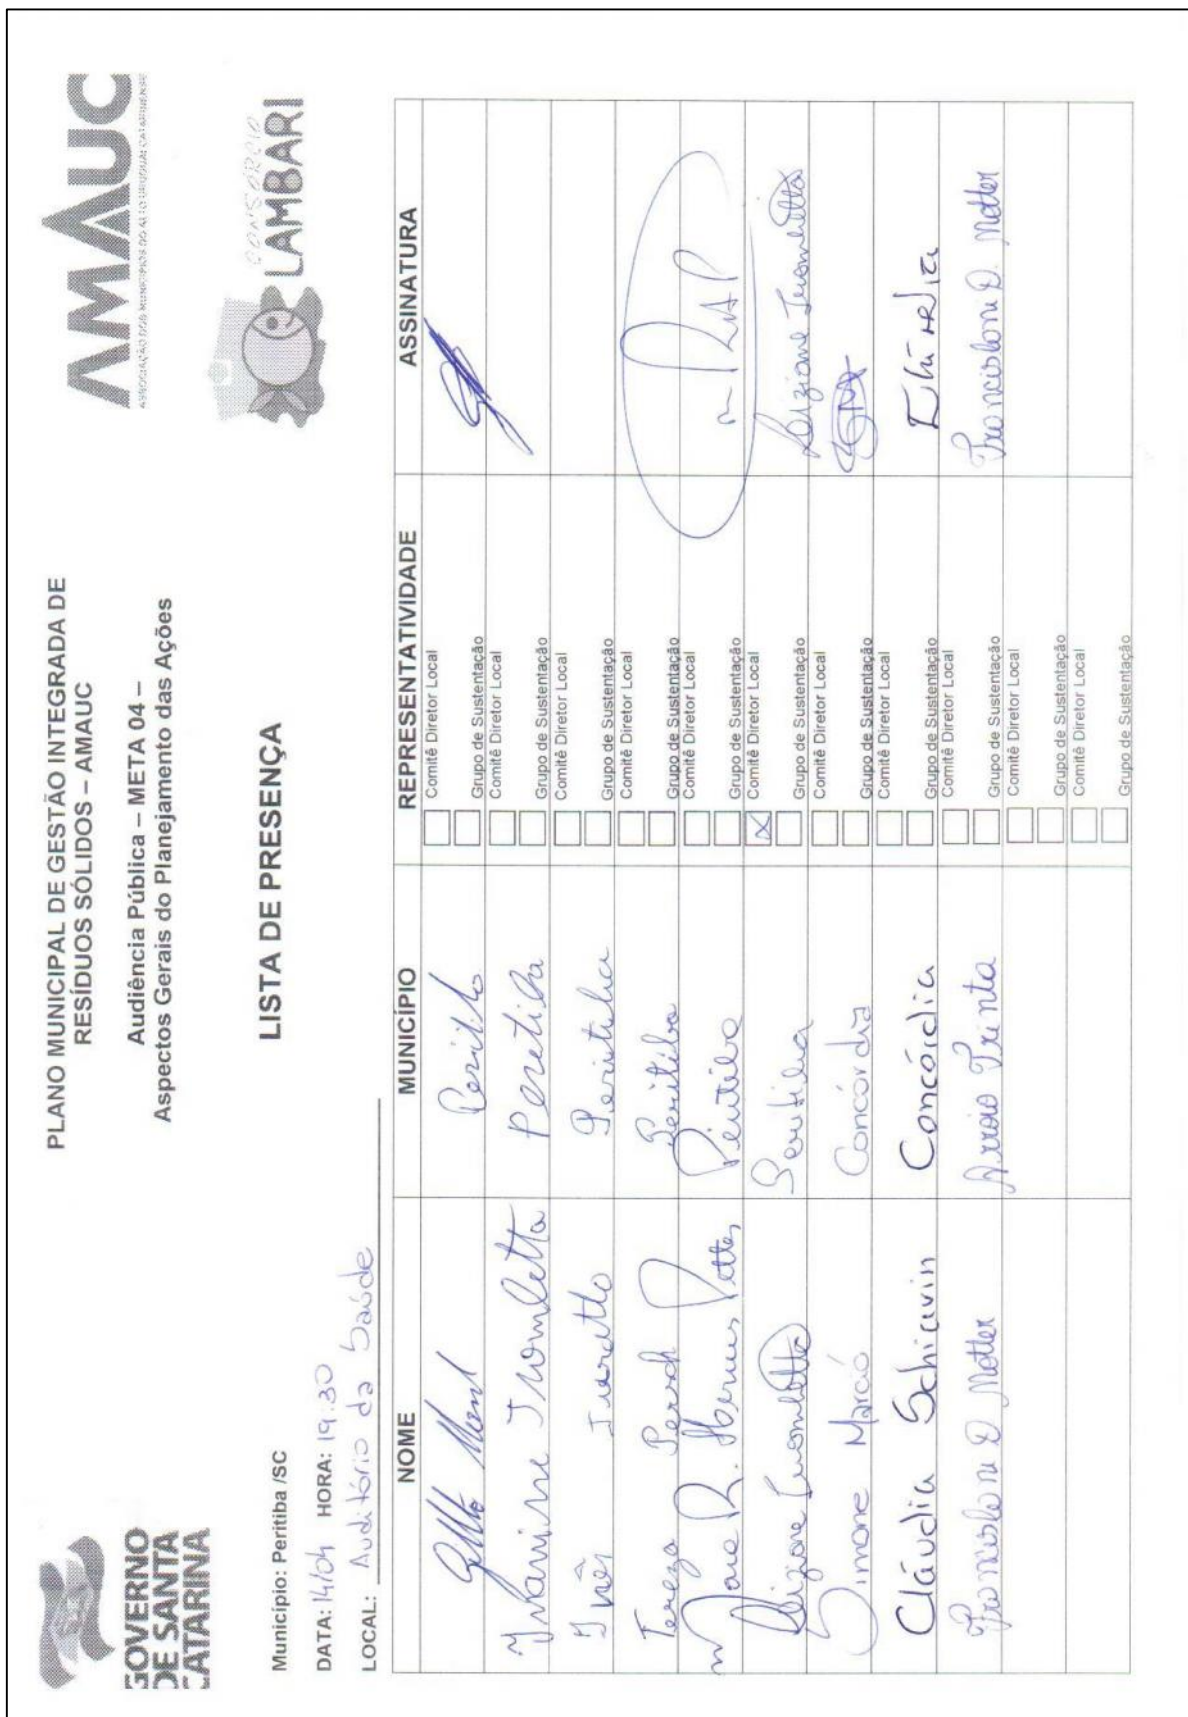 GOVERNO
DE SANTA
CATARINA
PLANO MUNICIPAL DE GESTÃO INTEGRADA DE
RESÍDUOS SÓLIDOS – AMAUC
Audiência Pública – META 04 –
Aspectos Gerais do Planejamento das Ações
AMAUC
ASSOCIAÇÃO DOS MUNICÍPIOS DO ALTO URUGUAI CATARINENSE
CONSÓRCIO
LAMBARI
LISTA DE PRESENÇA
Município: Peritiba /SC
DATA: 14/04 HORA: 19:30
LOCAL: Auditório da Saúde
NOME MUNICÍPIO REPRESENTATIVIDADE ASSINATURA
Comitê Diretor Local
Grupo de Sustentação
Ivanirse Trombetta Peritiba Comitê Diretor Local
Grupo de Sustentação
Inês Peritiba Comitê Diretor Local
Grupo de Sustentação
Tereza Peritiba Comitê Diretor Local
Grupo de Sustentação
Peritiba Comitê Diretor Local
Grupo de Sustentação
Trombetta Peritiba X Comitê Diretor Local Trombetta
Grupo de Sustentação
Simone Marció Concórdia Comitê Diretor Local
Grupo de Sustentação
Cláudia Schiavin Concórdia Comitê Diretor Local
Grupo de Sustentação
D Motter Arroio Trinta Comitê Diretor Local D. Motter
Grupo de Sustentação
Comitê Diretor Local
Grupo de Sustentação
Comitê Diretor Local
Grupo de Sustentação